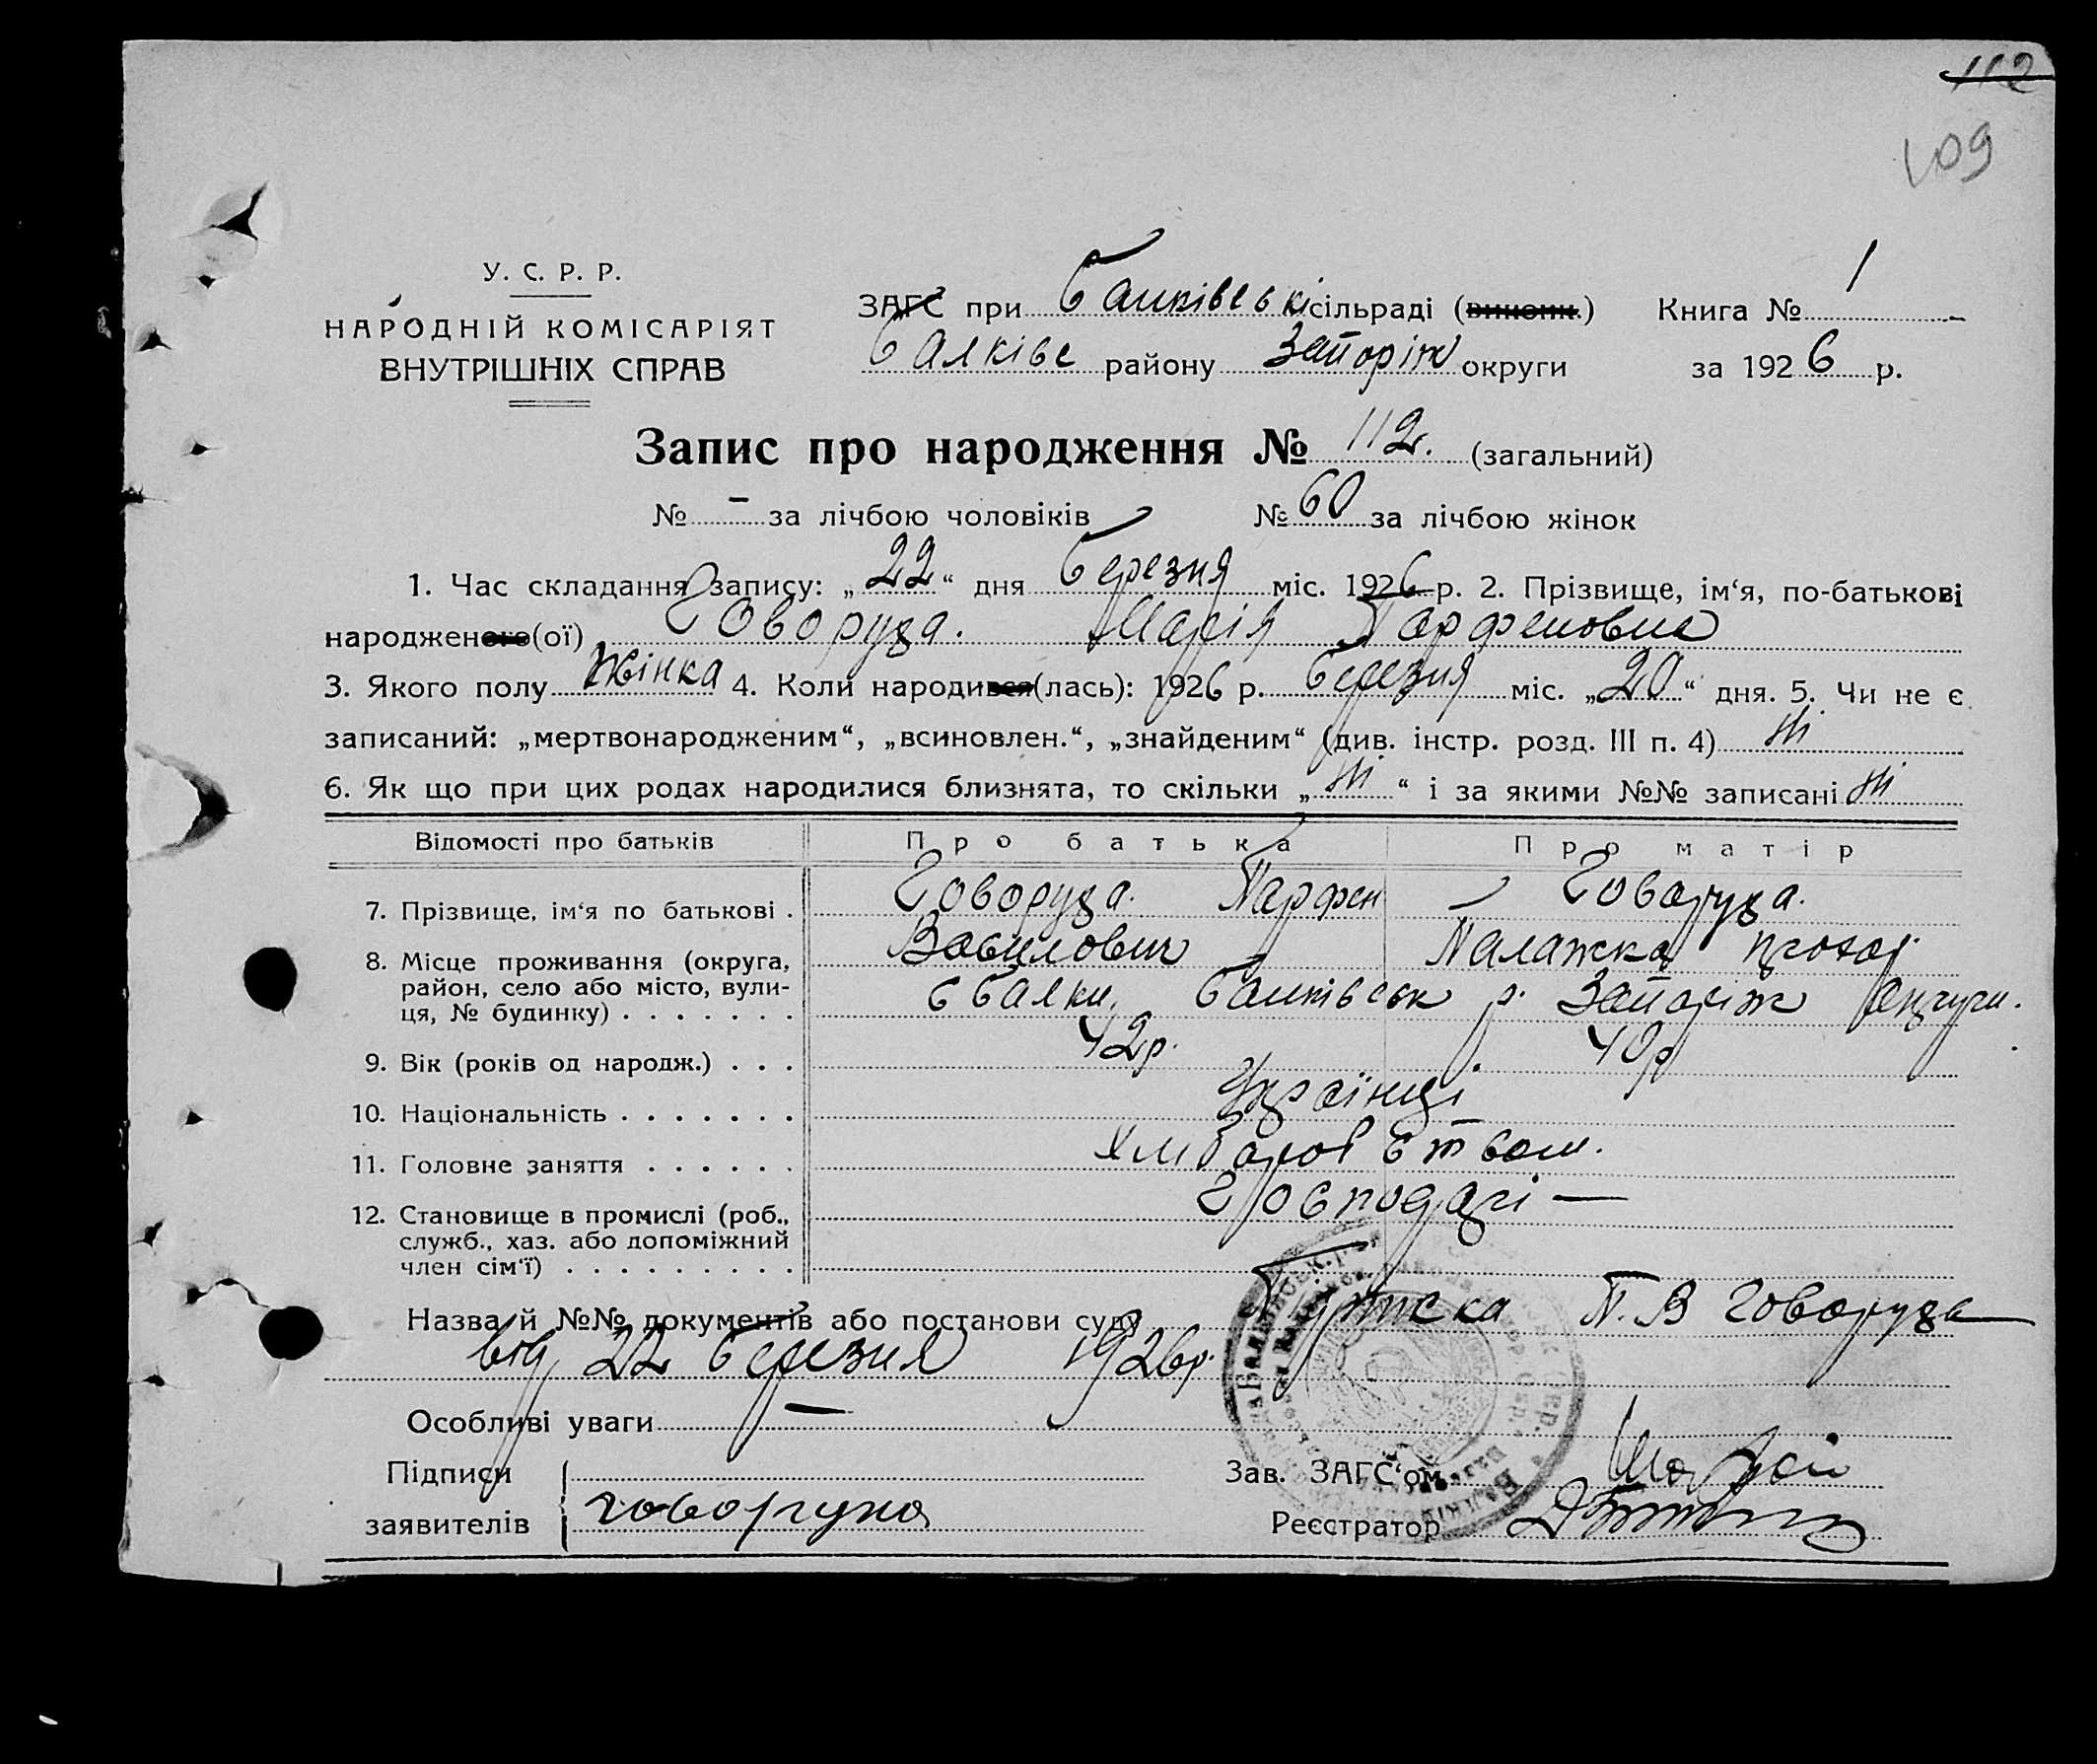 112
109
У. С. Р. Р.
НАРОДНІЙ КОМІСАРІЯТ
ВНУТРІШНІХ СПРАВ
ЗАГС при Балківські сільраді (викони.) Книга № 1
Балківс району Запоріж округи за 1926 р.
Запис про народження № 112. (загальний)
№ - за лічбою чоловіків № 60 за лічбою жінок
1. Час складання запису: „22“ дня Березня міс. 1926 р. 2. Прізвище, ім‘я, по-батькові
народженого(ої) Говоруха. Марія Парфеновна
3. Якого полу Жінка 4. Коли народився(лась): 1926 р. Березня міс. „20“ дня. 5. Чи не є
записаний: „мертвонародженим“, „всиновлен.“, „знайденим“ (див. інстр. розд. III п. 4) Ні
6. Як що при цих родах народилися близнята, то скільки „Ні“ і за якими №№ записані Ні
Відомості про батьків Про батька Про матір
7. Прізвище, ім‘я по батькові . Говоруха. Парфен Говоруха.
Вавилович Палажка Прохор
8. Місце проживання (округа,
район, село або місто, вули-
ця, № будинку) . . . . . . . с Балки, Балківськ р. Запоріж округи.
9. Вік (років од народж.) . . . 42р. 40р
10. Національність . . . . . . . Українці
11. Головне заняття . . . . . . Хліборобством.
12. Становище в промислі (роб., Господарі —
служб., хаз. або допоміжний
член сім‘ї) . . . . . . . . .
Назва й №№ документів або постанови суду П. В Говоруха
від 22 Березня 1926р.
Особливі уваги —
Підписи Зав. ЗАГС‘ом
заявителів говоруха Реєстратор